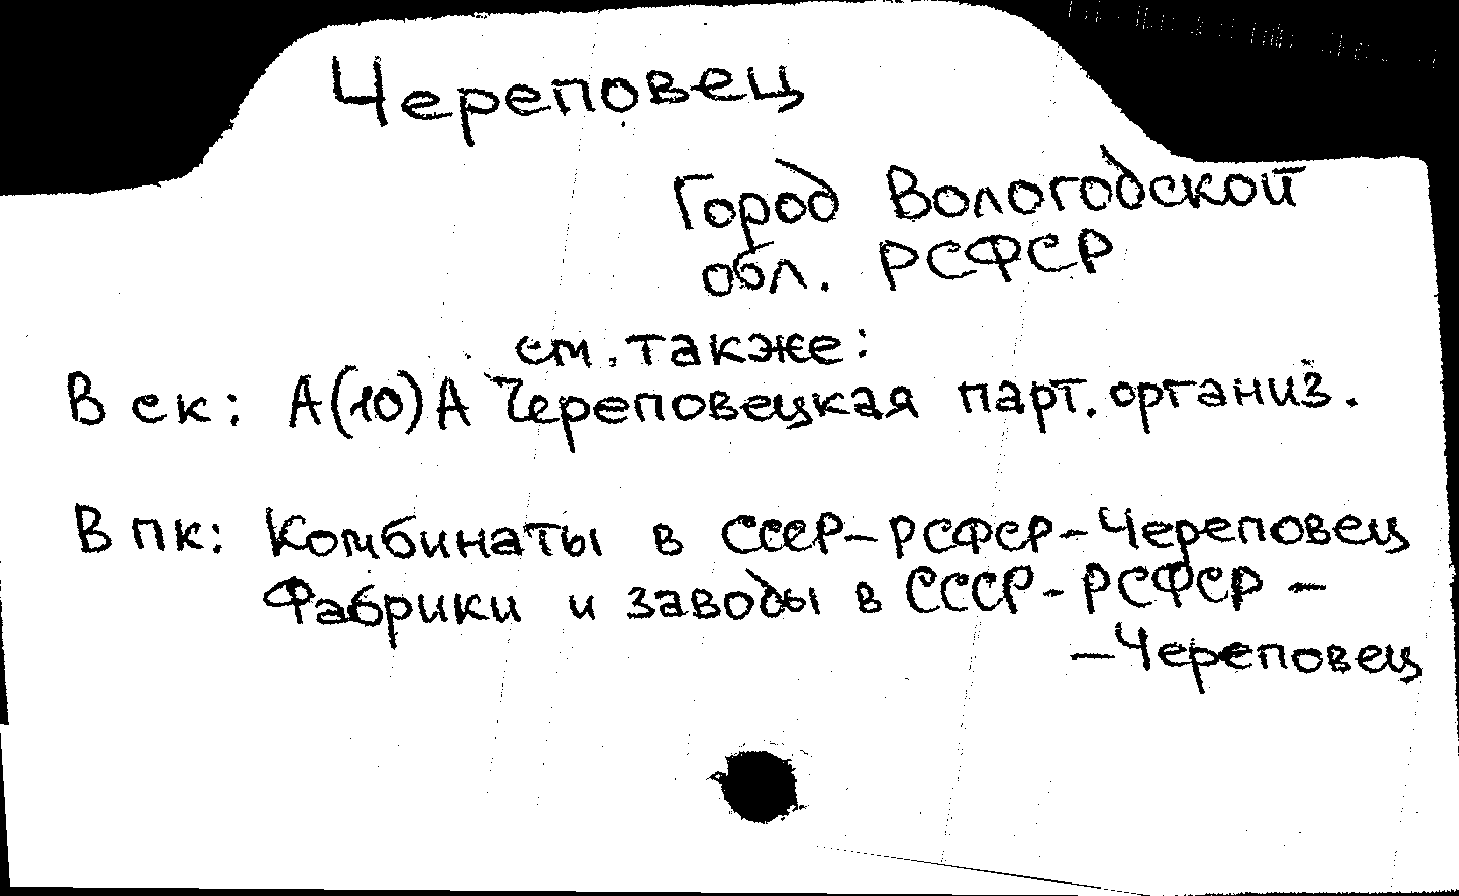 Череповец
Город Вологодской
обл. РСФСР
см. также:
В ск: А(10)А Череповецкая парт. организ.
В пк: Комбинаты в СССР-РСФСР-Череповец
Фабрики и заводы в СССР-РСФСР -
-Череповец